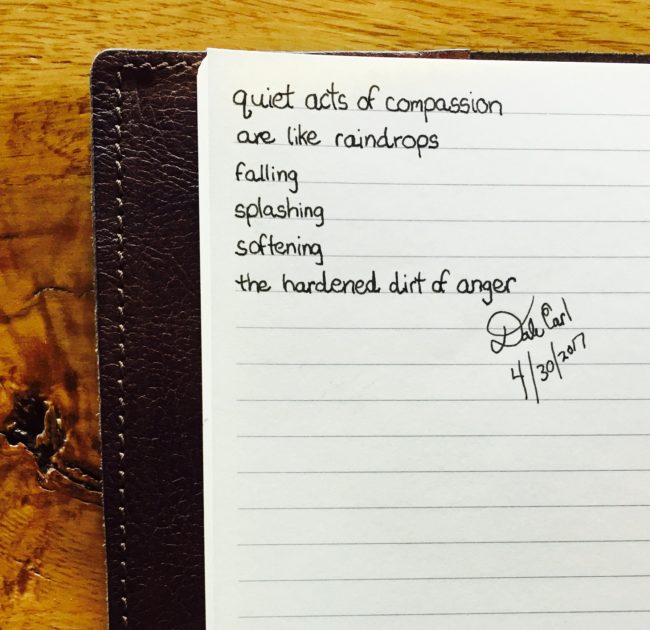 quiet acts of compassion
are like raindrops
falling
splashing
softening
the hardened dirt of anger
Dale Carl
4/30/2017